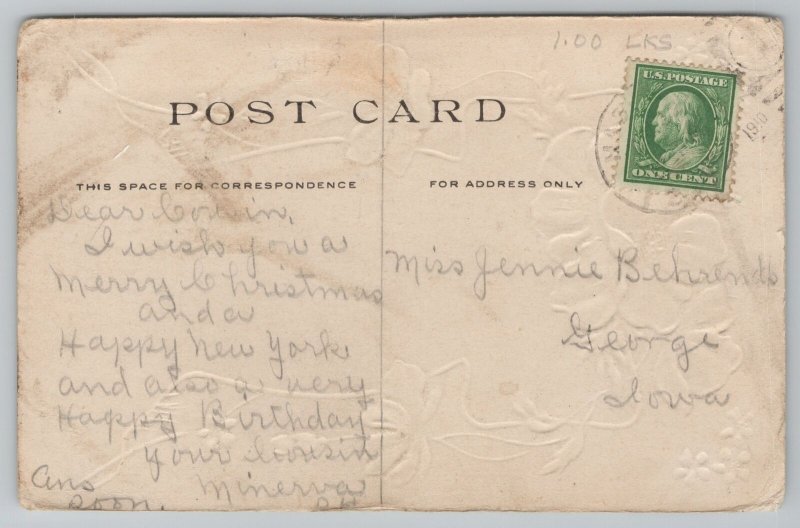 1.00 LKS
U.S. POSTAGE
ONE CENT
1910
POST CARD
THIS SPACE FOR CORRESPONDENCE
FOR ADDRESS ONLY
Dear Cousin,
I wish you a
Merry Christmas
and a
Happy New York
and also a very
Happy Birthday
your Cousin
Minerva
Ans
soon.
Miss Jennie Behrends
George
Iowa